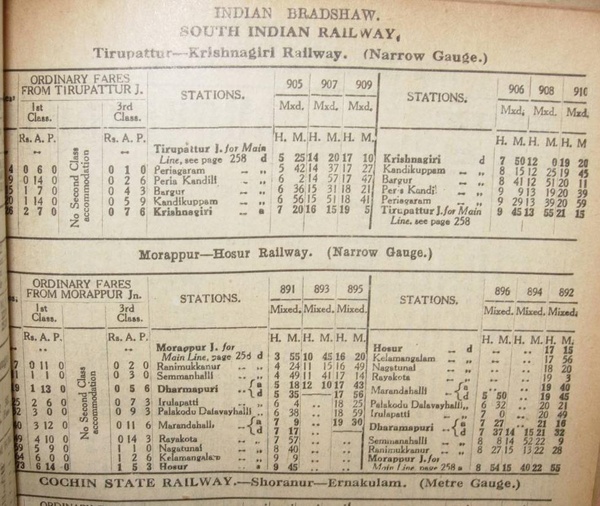 INDIAN BRADSHAW.
SOUTH INDIAN RAILWAY,
Tirupattur—Krishnagiri Railway. (Narrow Gauge.)
ORDINARY FARES FROM TIRUPATTUR J. STATIONS. 905 907 909 STATIONS. 906 908 910
1st Class. 3rd Class. Mxd. Mxd. Mxd. Mxd. Mxd. Mxd.
Rs. A. P. No Second Class accommodation Rs. A. P. H. M. H. M. H. M. H. M. H. M. H. M.
.. .. Tirupattur J. for Main Line, see page 258 d 5 25 14 20 17 10 Krishnagiri d 7 50 12 0 19 20
0 6 0 0 1 0 Periagaram 5 42 14 37 17 27 Kandikuppam 8 15 12 25 19 45
0 14 0 0 2 6 Peria Kandili 6 2 14 57 17 47 Bargur 8 41 12 51 20 11
1 7 0 0 4 3 Bargur 6 36 15 31 18 21 Peria Kandili 9 9 13 19 20 39
1 14 0 0 5 9 Kandikuppam 6 56 15 51 18 41 Periagaram 9 29 13 39 20 59
2 7 0 0 7 6 Krishnagiri a 7 20 16 15 19 5 Tirupattur J. for Main Line, see page 258 9 45 13 55 21 15
Morappur—Hosur Railway. (Narrow Gauge.)
ORDINARY FARES FROM MORAPPUR Jn. STATIONS. 891 893 895 STATIONS. 896 894 892
1st Class. 3rd Class. Mixed. Mixed. Mixed. Mixed. Mixed. Mixed.
Rs. A. P. No Second Class accommodation Rs. A. P. H. M. H. M. H. M. H. M. H. M. H. M.
Morappur J. for Main Line, page 258 d 3 55 10 45 16 20 Hosur d .. .. 17 15
0 11 0 0 2 0 Ranimukkanur 4 24 11 15 16 49 Kelamangalam .. .. 17 56
0 3 0 Semmanhalli 4 49 11 41 17 14 Nagatunal .. .. 18 20
1 13 0 0 5 6 Dharmapuri a 5 18 12 10 17 43 Rayakota .. .. 19 3
d 5 35 — 17 56 Marandahalli a .. .. 19 40
2 6 0 0 7 3 Irulapatti 6 4 .. 18 25 d 5 50 .. 19 45
3 0 0 0 9 3 Palakodu Dalavayhalli 6 38 .. 18 59 Palakodu Dalavayhalli 6 32 .. 20 21
3 12 0 0 11 6 Marandahalli a 7 9 .. 19 30 Irulapatti 7 0 .. 20 49
d 7 17 .. .. Dharamapuri a 7 27 .. 21 16
4 10 0 0 14 3 Rayakota 7 57 .. .. d 7 37 14 15 21 32
5 9 0 1 1 0 Nagatunal 8 40 .. .. Semmanahalli 8 8 14 52 22 9
6 0 1 2 6 Kelamangalam 9 9 .. .. Ranimukkanur 8 27 15 13 22 28
6 14 0 1 5 3 Hosur a 9 45 .. .. Morappur J. for Main Line, page 258 a 8 54 15 40 22 55
COCHIN STATE RAILWAY.—Shoranur—Ernakulam. (Metre Gauge.)